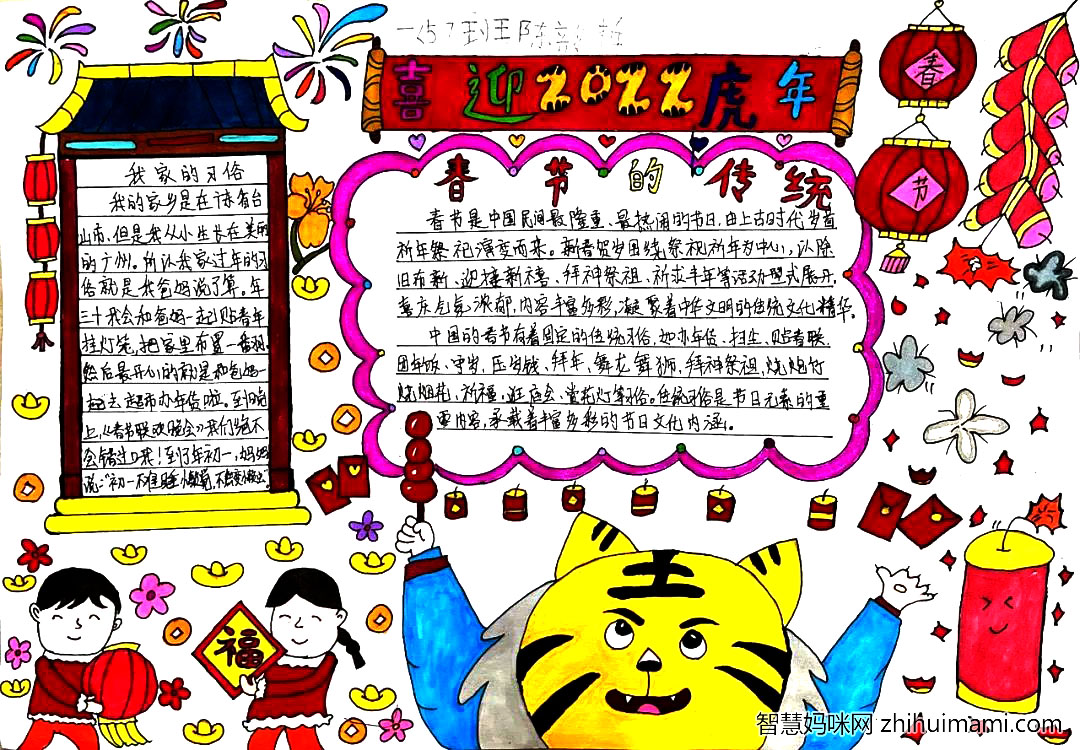 喜迎2022虎年
春
节
春节的传统
春节是中国民间最隆重、最热闹的节日,由上古时代岁首
祈年祭祀演变而来。新春贺岁围绕祭祝祈年为中心,以除
旧布新、迎禧接福、拜神祭祖、祈求丰年等活动形式展开,
喜庆气氛浓郁,内容丰富多彩,凝聚着中华文明的传统文化精华。
中国的春节有着固定的传统习俗,如办年货、扫尘、贴春联
团年饭、守岁、压岁钱、拜年、舞龙舞狮、拜神祭祖、烧炮竹
烧烟花、祈福、逛庙会、赏花灯等俗。传统习俗是节日元素的重
要内容,承载着丰富多彩的节日文化内涵。
我家的习俗
我的家乡是在 省台
山市,但是我从小生长在美丽
的广州。所以我家过年的习
俗就是我爸妈说了算。年
三十我会和爸妈一起贴春年
挂灯笼,把家里布置一番
然后最开心的就是和爸妈一
起去超市办年货啦。到了晚
上,《春节联欢晚会》我们绝不
会错过哦!到了年初一,妈妈
说:"初一不准睡懒觉,
福
王
智慧妈咪网 zhihuimami.com